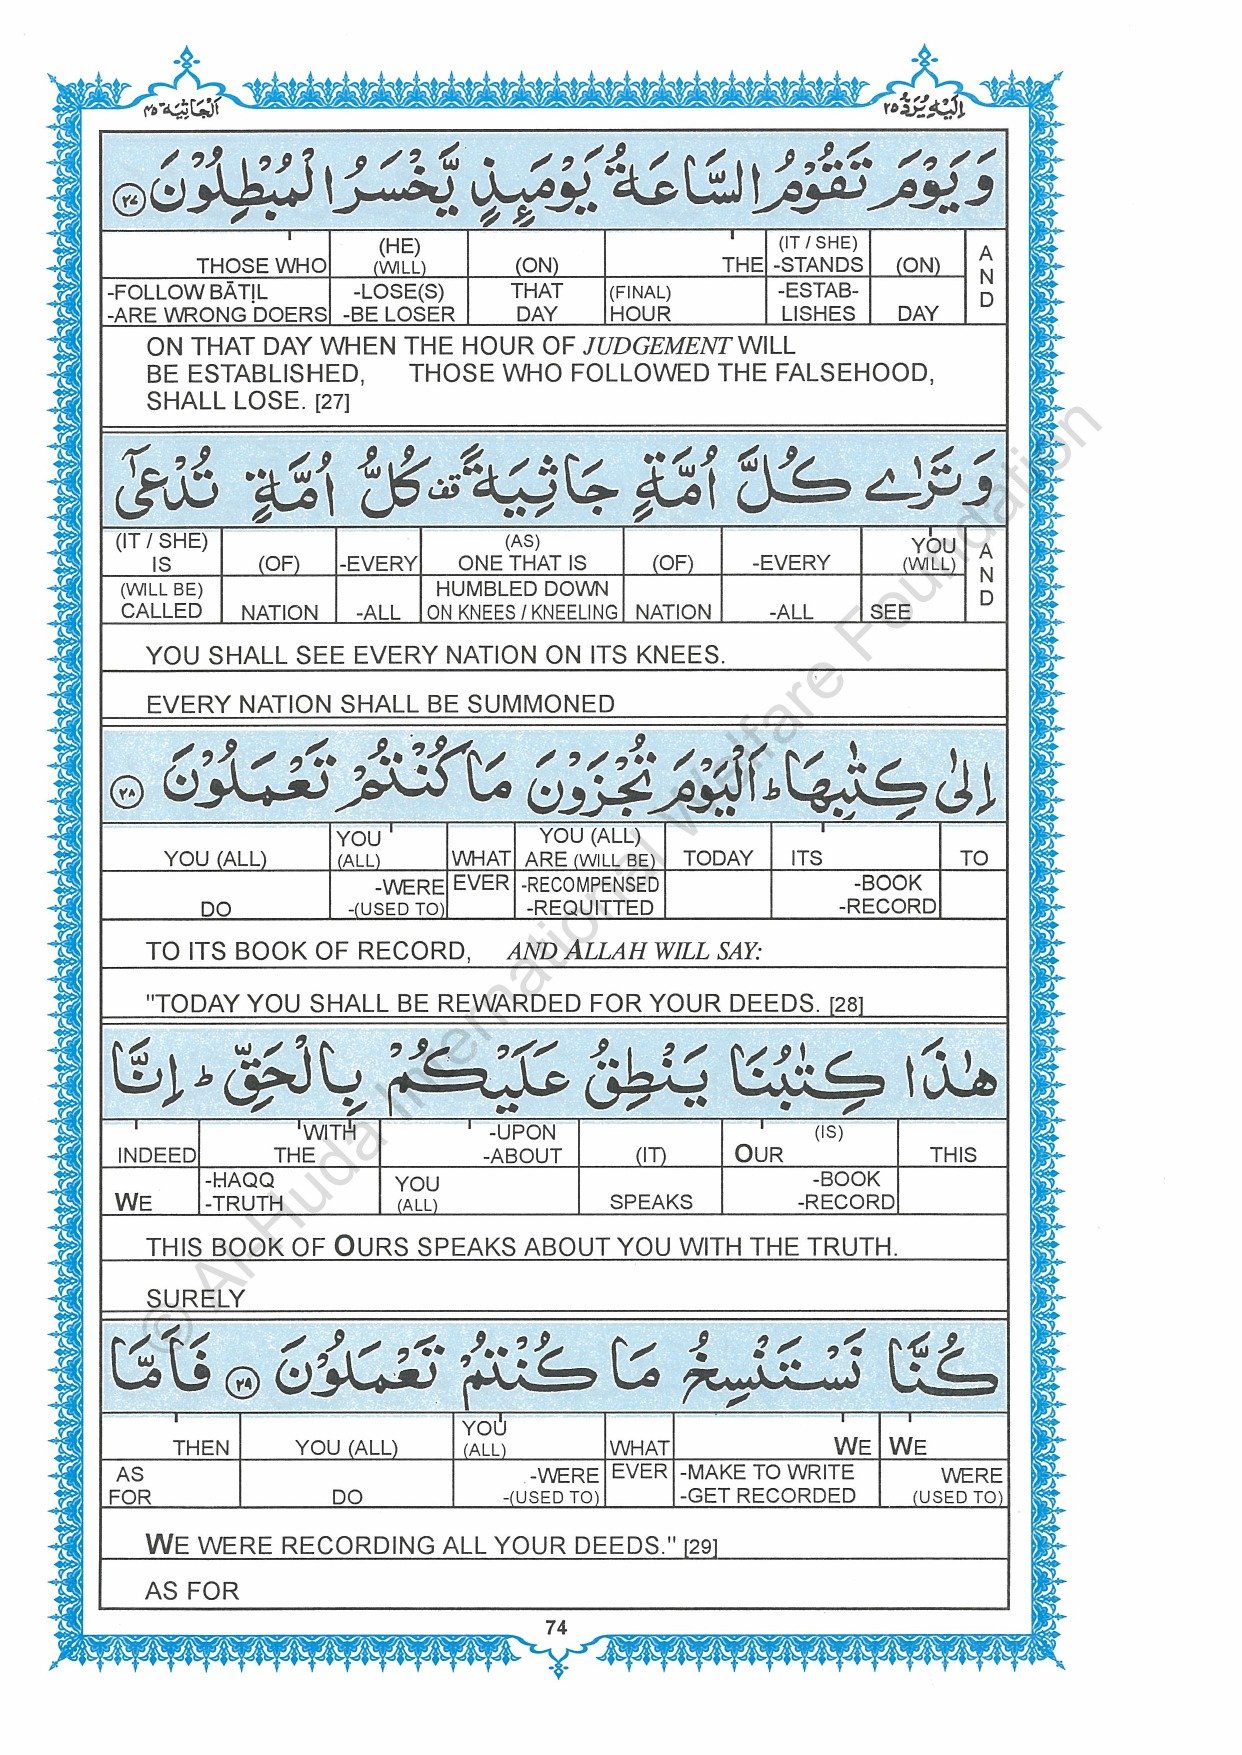 اَلْجَاثِيَة ٤٥
اِلَيْهِ يُرَدُّ ٢٥
وَيَوْمَ تَقُوْمُ السَّاعَةُ يَوْمَىِٕذٍ يَّخْسَرُ الْمُبْطِلُوْنَ ٢٧
(HE) (IT / SHE) A
THOSE WHO (WILL) (ON) THE -STANDS (ON) N
-FOLLOW BĀṬIL -LOSE(S) THAT (FINAL) -ESTAB- D
-ARE WRONG DOERS -BE LOSER DAY HOUR LISHES DAY
ON THAT DAY WHEN THE HOUR OF JUDGEMENT WILL
BE ESTABLISHED, THOSE WHO FOLLOWED THE FALSEHOOD,
SHALL LOSE. [27]
وَتَرٰى كُلَّ اُمَّةٍ جَاثِيَةً قف كُلُّ اُمَّةٍ تُدْعٰۤى
(IT / SHE) (AS) YOU A
IS (OF) -EVERY ONE THAT IS (OF) -EVERY (WILL) N
(WILL BE) HUMBLED DOWN D
CALLED NATION -ALL ON KNEES / KNEELING NATION -ALL SEE
YOU SHALL SEE EVERY NATION ON ITS KNEES.
EVERY NATION SHALL BE SUMMONED
اِلٰى كِتٰبِهَا ؕ اَلْيَوْمَ تُجْزَوْنَ مَا كُنْتُمْ تَعْمَلُوْنَ ٢٨
YOU YOU (ALL)
YOU (ALL) (ALL) WHAT ARE (WILL BE) TODAY ITS TO
-WERE EVER -RECOMPENSED -BOOK
DO -(USED TO) -REQUITTED -RECORD
TO ITS BOOK OF RECORD, AND ALLAH WILL SAY:
"TODAY YOU SHALL BE REWARDED FOR YOUR DEEDS. [28]
هٰذَا كِتٰبُنَا يَنْطِقُ عَلَيْكُمْ بِالْحَقِّ ؕ اِنَّا
WITH -UPON (IS)
INDEED THE -ABOUT (IT) OUR THIS
-HAQQ YOU -BOOK
WE -TRUTH (ALL) SPEAKS -RECORD
THIS BOOK OF OURS SPEAKS ABOUT YOU WITH THE TRUTH.
SURELY
كُنَّا نَسْتَنْسِخُ مَا كُنْتُمْ تَعْمَلُوْنَ ٢٩ فَاَمَّا
YOU
THEN YOU (ALL) (ALL) WHAT WE WE
AS -WERE EVER -MAKE TO WRITE WERE
FOR DO -(USED TO) -GET RECORDED (USED TO)
WE WERE RECORDING ALL YOUR DEEDS." [29]
AS FOR
74
© Al-Huda International Welfare Foundation